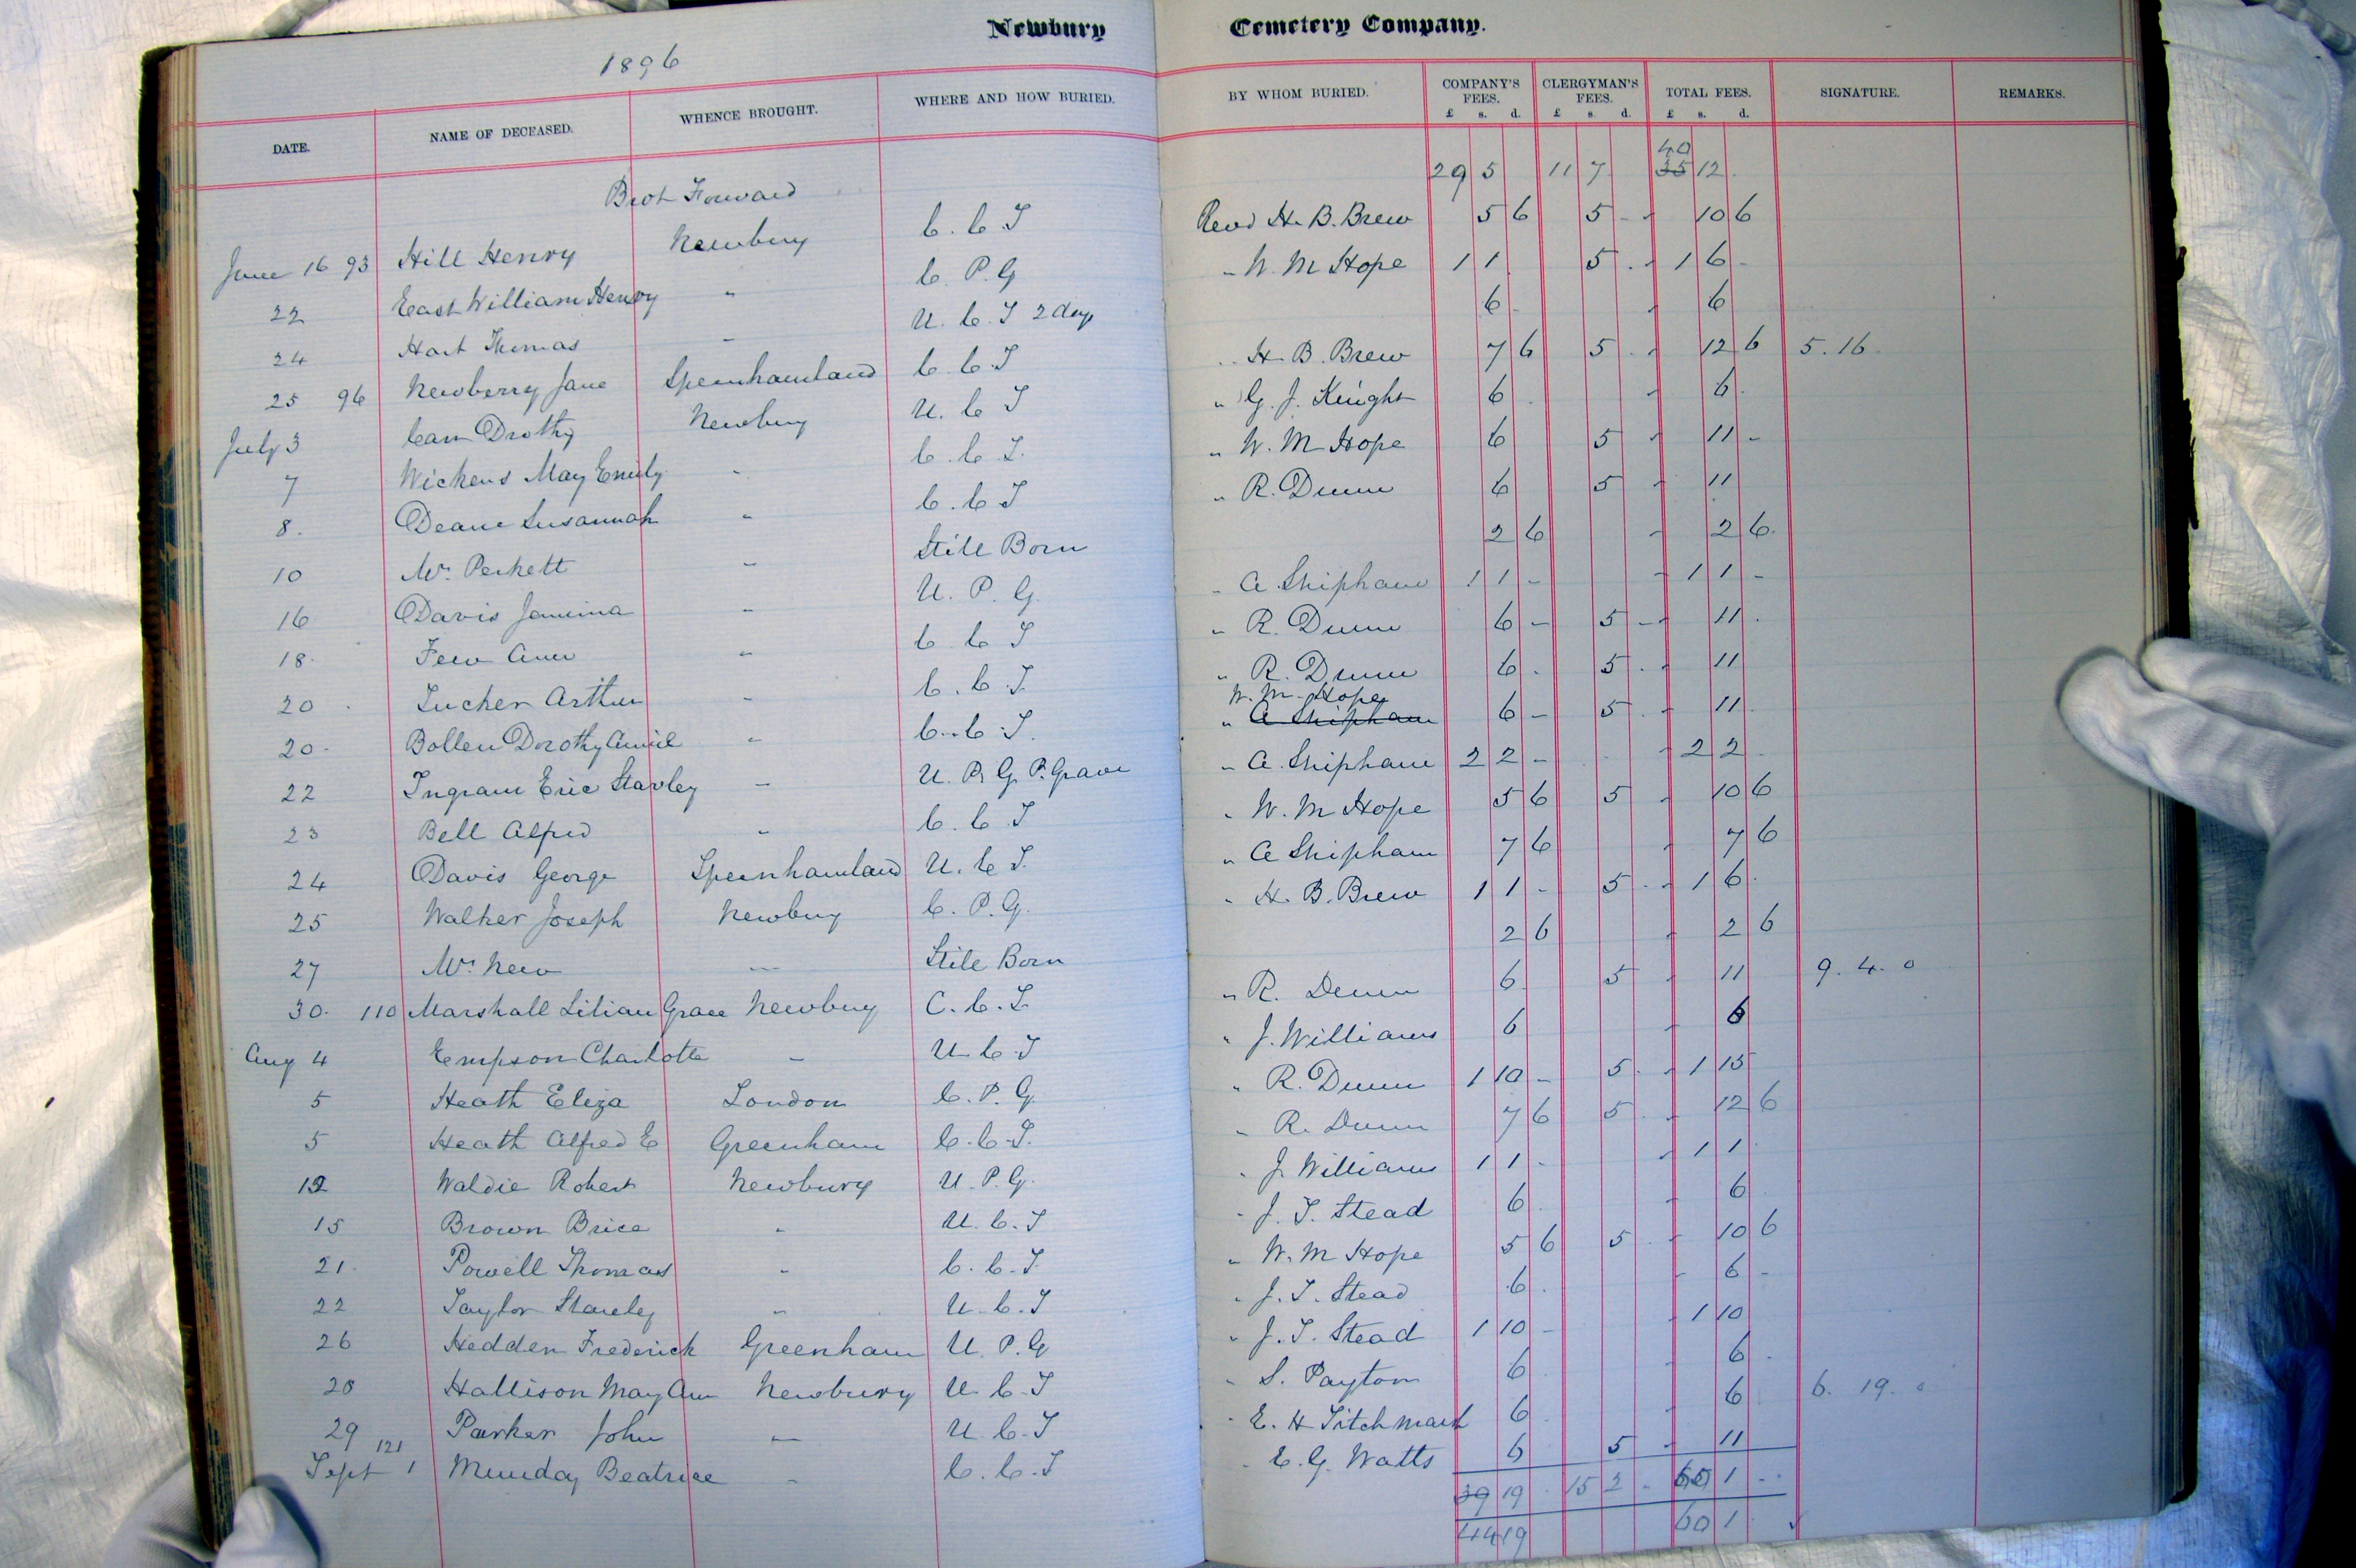 Newbury Cemetery Company.
1896
DATE. NAME OF DECEASED. WHENCE BROUGHT. WHERE AND HOW BURIED. BY WHOM BURIED. COMPANY'S FEES. CLERGYMAN'S FEES. TOTAL FEES. SIGNATURE. REMARKS.
£ s. d. £ s. d. £ s. d.
40
Brot Forward 29 5 11 7 35 12
June 16 93 Hill Henry Newbury C. C. I Revd H. B. Brew 5 6 5 - 10 6
22 East William Henry " C. P. G " W. M Hope 1 1 5 - 1 6 -
24 Hart Thomas " U. C. I 2 days 6 - 6
25 96 Newberry Jane Speenhamland C. C. I " H. B. Brew 7 6 5 - 12 6 5. 16
July 3 Cam Drothy Newbury U. C I " G. J. Knight 6 6
7 Wickens May Emily " C. C. I. " W. M Hope 6 5 11 -
8. Deane Susannah " C. C. I " R. Dunn 6 5 11
10 Mrs Perkett " Still Born 2 6 2 6
16 Davis Jamima " U. P. G. " A Shipham 1 1 - 1 1 -
18 Few Ann " C C I " R. Dunn 6 - 5 - 11
20 Tucker Arthur " C. C. I " R. Dunn 6 5 11
W. M. Hope
20 Bollen Dorothy Annie " C. C. I. " A Shipham 6 - 5 11
22 Ingram Eric Stavley " U. P. G P. Grave " A. Shipham 2 2 - 2 2
23 Bell Alfred " C. C I " W. M Hope 5 6 5 10 6
24 Davis George Speenhamland U. C I. " A Shipham 7 6 7 6
25 Walker Joseph Newbury C. P. G. " H. B. Brew 1 1 - 5 1 6
27 Mrs New " Still Born 2 6 2 6
30 110 Marshall Lilian Grace Newbury C. C. I. " R. Dunn 6 5 11 9. 4. 0
Aug 4 Empson Charlotte " U C I " J. Williams 6 6
5 Heath Eliza London C. P. G. " R. Dunn 1 10 - 5 1 15
5 Heath Alfred E Greenham C. C. I. " R. Dunn 7 6 5 12 6
12 Waldie Robert Newbury U. P. G. " J. Williams 1 1 - 1 1
15 Brown Brice " U. C. I " J. T. Stead 6 6
21 Powell Thomas " C. C. I " W. M Hope 5 6 5 10 6
22 Taylor Stanley " U. C. I " J. T. Stead 6 6 -
26 Hedden Frederick Greenham U. P. G " J. T. Stead 1 10 - 1 10
28 Hallison May Ann Newbury U. C. I " S. Payton 6 6
29 Parker John " U. C. I " E. H Titchmarsh 6 6 6. 19. 0
Sept 1 121 Munday Beatrice " C. C. I " E. G. Watts 6 5 11
39 19 15 2 - 1
44 19 60 1